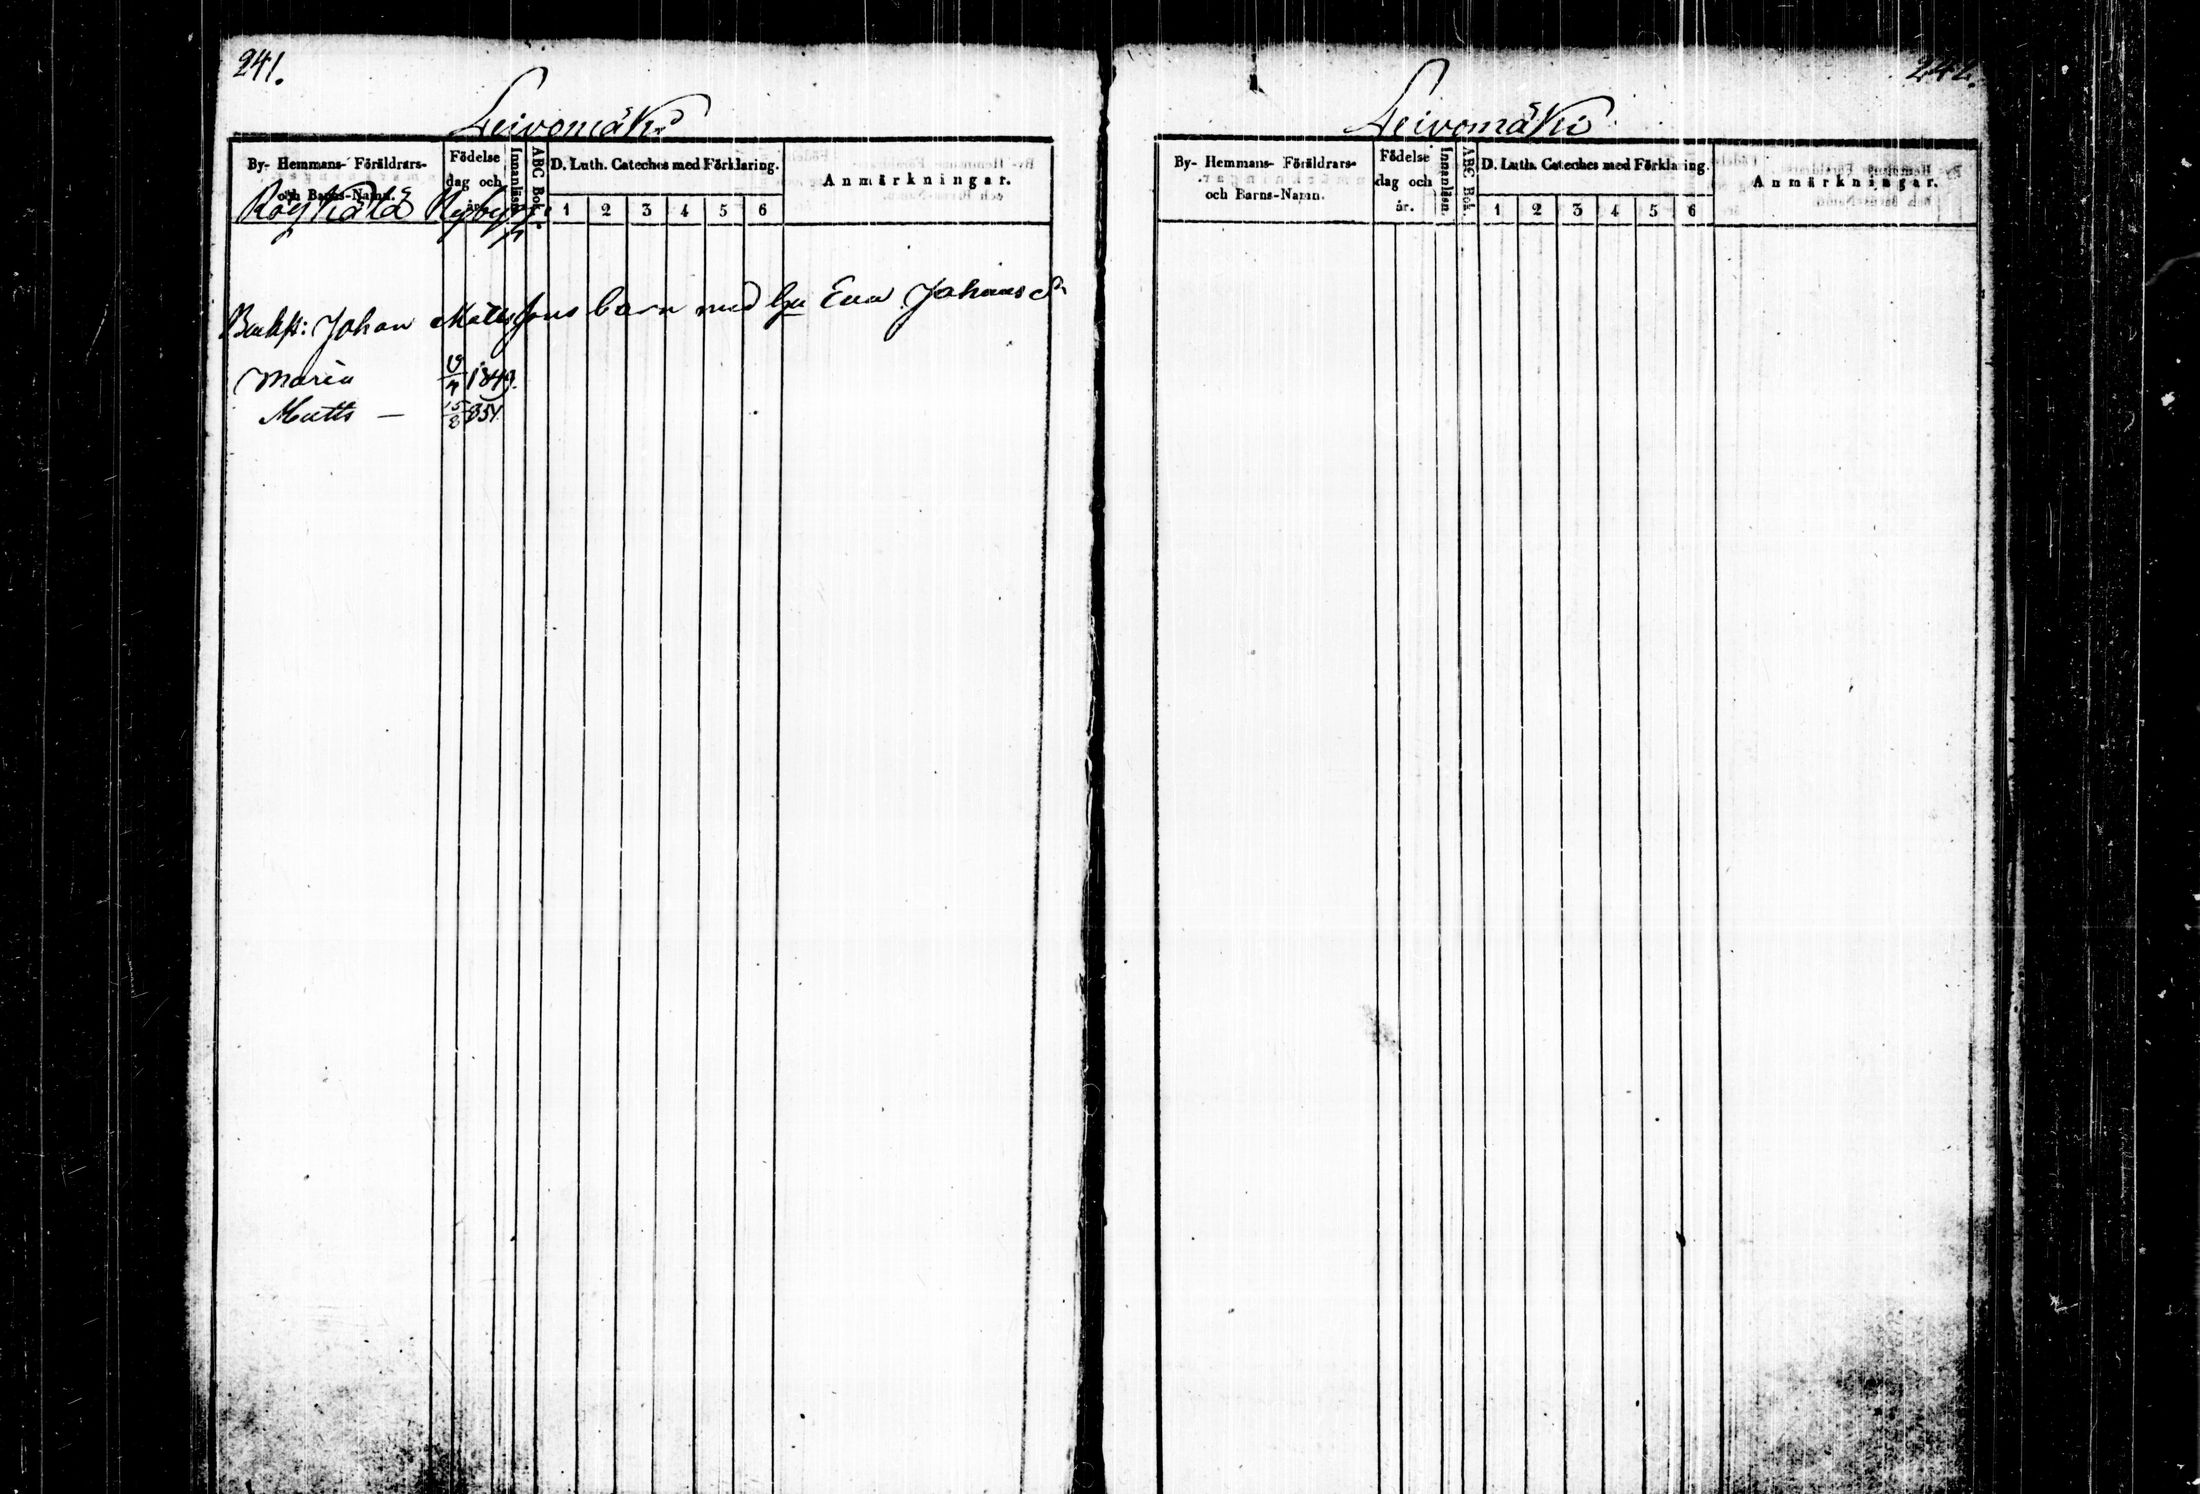 241.
Leivomäki
By- Hemmans- Föräldrars-
och Barns-Namn.
Födelse
dag och
år.
Innanläsn.
ABC Bok.
D. Luth. Cateches med Förklaring.
1 2 3 4 5 6
Anmärkningar.
Nybygge
Johan Mattssons barn med hu Eva Johansdr
Maria 19/4 1849.
Matts — 15/8 851
242.
Leivomäki
By- Hemmans- Föräldrars-
och Barns-Namn.
Födelse
dag och
år.
Innanläsn.
ABC Bok.
D. Luth. Cateches med Förklaring.
1 2 3 4 5 6
Anmärkningar.